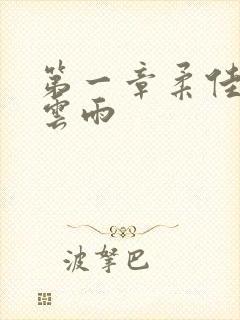 第一章柔佳
雲雨
波拏巴